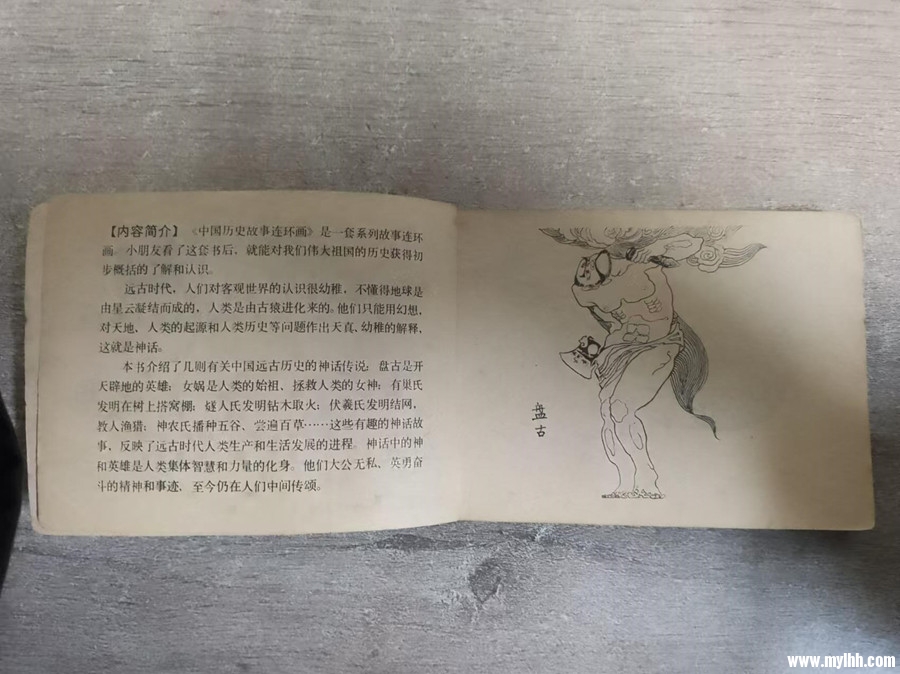 【内容简介】《中国历史故事连环画》是一套系列故事连环
画。小朋友看了这套书后，就能对我们伟大祖国的历史获得初
步概括的了解和认识。
远古时代，人们对客观世界的认识很幼稚，不懂得地球是
由星云凝结而成的，人类是由古猿进化来的。他们只能用幻想，
对天地、人类的起源和人类历史等问题作出天真、幼稚的解释，
这就是神话。
本书介绍了几则有关中国远古历史的神话传说：盘古是开
天辟地的英雄；女娲是人类的始祖、拯救人类的女神；有巢氏
发明在树上搭窝棚；燧人氏发明钻木取火；伏羲氏发明结网，
教人渔猎；神农氏播种五谷、尝遍百草……这些有趣的神话故
事，反映了远古时代人类生产和生活发展的进程。神话中的神
和英雄是人类集体智慧和力量的化身。他们大公无私、英勇奋
斗的精神和事迹，至今仍在人们中间传颂。
盘古
www.mylhh.com